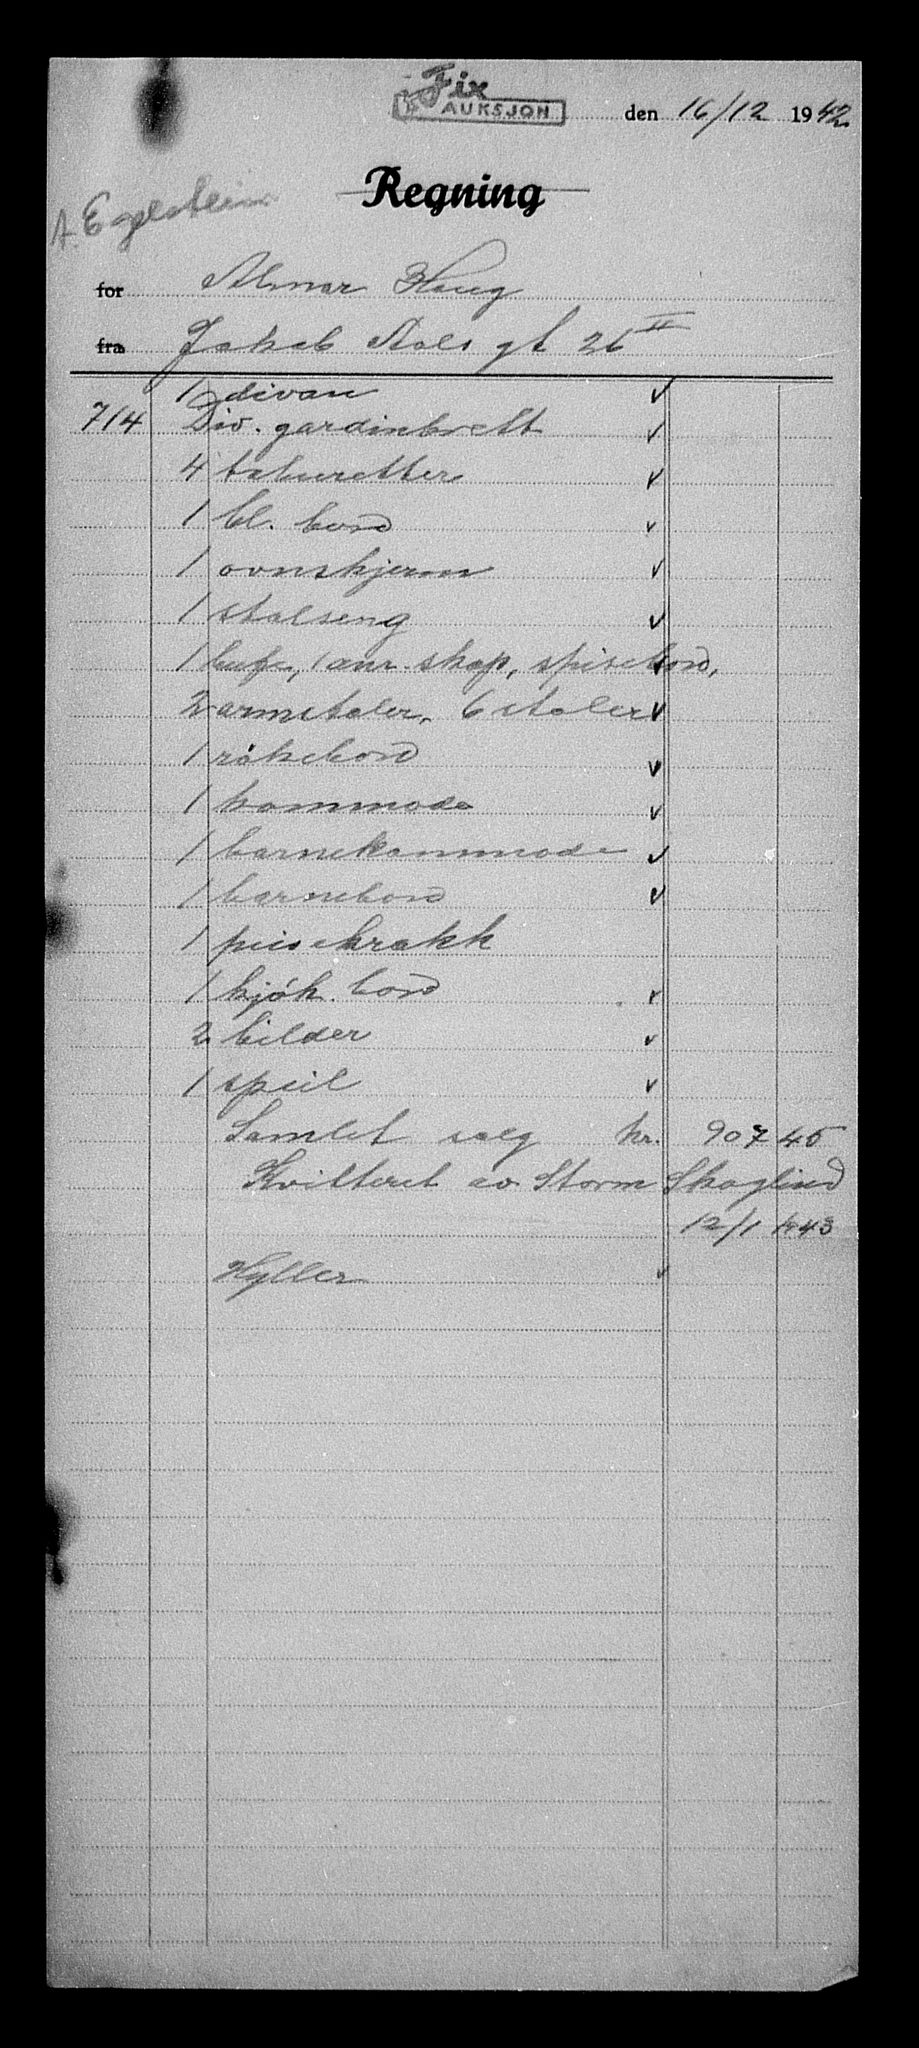 Fix
AUKSJON
den 16/12 1942
Regning
A.
for Almar Haug
fra Jakob Aals gt 26 II
1 divan
714 Div. gardinbrett
4 taburetter
1 bl. bord
1 ovnskjerm
1 stalseng
1 bufe, 1 anr. skap, spisebord,
2 armstoler, 6 stoler
1 røkebord
1 kommode
1 barnekommode
1 barnebord
1 peisekrakk
1 kjøk. bord
2 bilder
1 speil
Samlet salg kr. 907 45
Kvitteret av Storm Skoglund
12/1 1943
Hyller